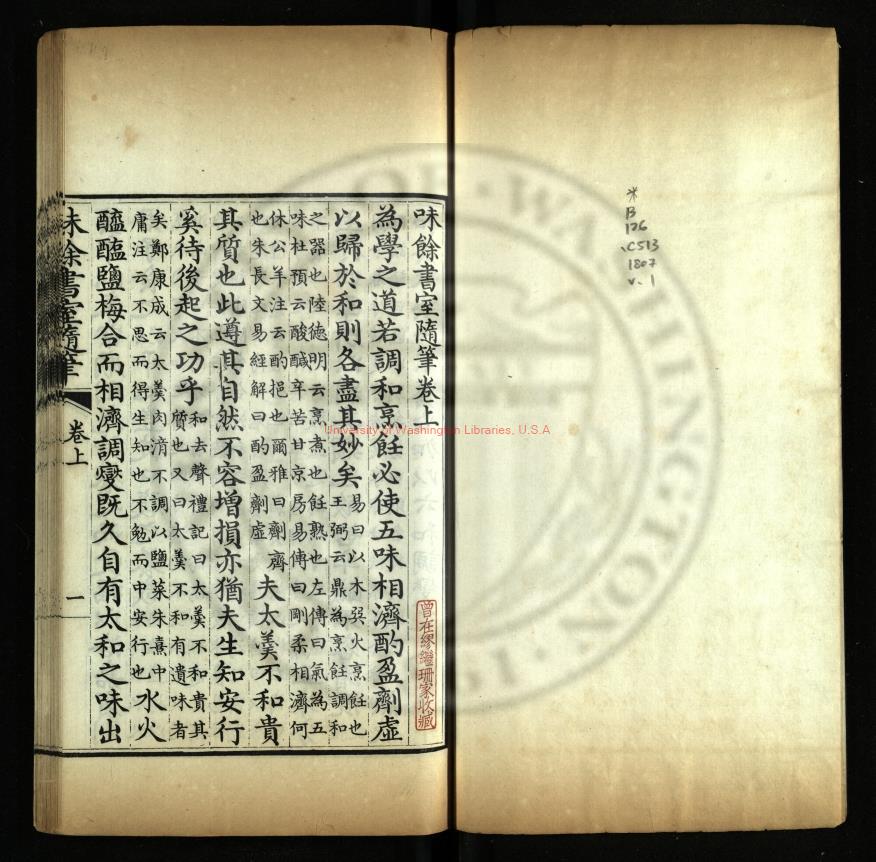 味餘書室隨筆卷上
曾在繆繼珊家收藏
為學之道若調和烹飪必使五味相濟酌盈劑虛
以歸於和則各盡其妙矣
易曰以木巽火烹飪也
王弼云鼎為烹飪調和
之器也陸德明云烹煮也飪熟也左傳曰氣為五
味杜預云酸鹹辛苦甘京房易傳曰剛柔相濟何
休公羊注云酌挹也爾雅曰劑齊
也朱長文易經解曰酌盈劑虛
夫太羹不和貴
其質也此遵其自然不容增損亦猶夫生知安行
奚待後起之功乎
和去聲禮記曰太羹不和貴其
質也又曰太羹不和有遺味者
矣鄭康成云太羹肉湆不調以鹽菜朱熹中
庸注云不思而得生知也不勉而中安行也
水火
醯醢鹽梅合而相濟調燮既久自有太和之味出
味餘書室隨筆
卷上
一
B
126
C513
1807
v. 1
University of Washington Libraries, U.S.A
WASHINGTON